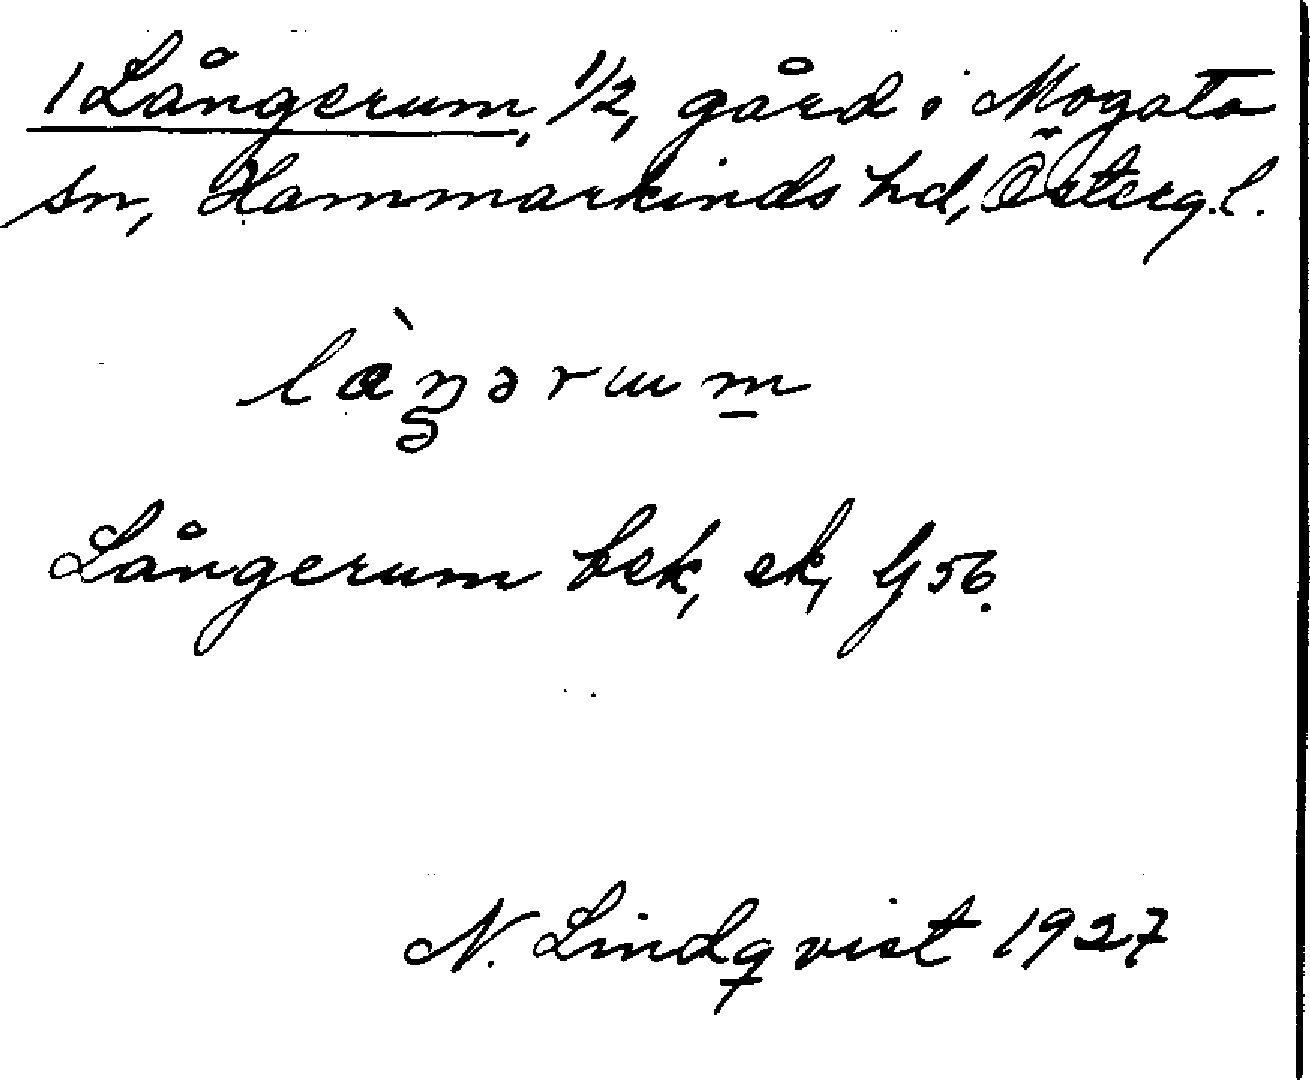 1 Långerum, 1/2, gård i Mogata
sn, Hammarkinds hd, Östergl.
Långerum bek, ek, G 56.
N. Lindqvist 1927